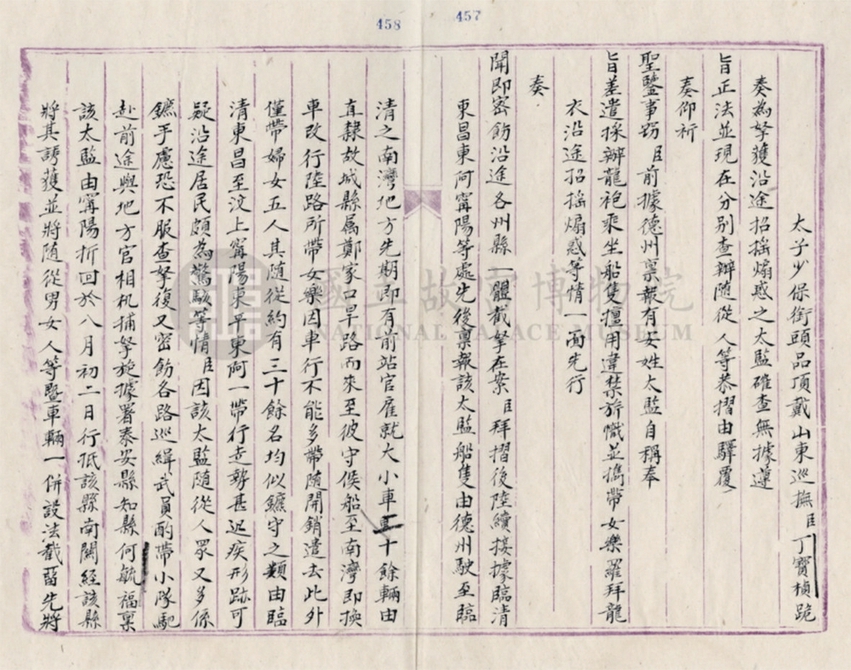 458
457
太子少保銜頭品頂戴山東巡撫臣丁寶楨跪
奏為拏獲沿途招搖煽惑之太監確查無據遵
旨正法並現在分別查辦隨從人等恭摺由驛覆
奏仰祈
聖鑒事竊臣前據德州稟報有安姓太監自稱奉
旨差遣採辦龍袍乘坐船隻擅用違禁旂幟並攜帶女樂羅拜龍
衣沿途招搖煽惑等情一面先行
奏
聞即密飭沿途各州縣一體截拏在案臣拜摺後陸續接據臨清
東昌東阿甯陽等處先後稟報該太監船隻由德州駛至臨
清之南灣地方先期即有前站官雇就大小車三十餘輛由
直隸故城縣屬鄭家口旱路而來至彼守候船至南灣即換
車改行陸路所帶女樂因車行不能多帶隨開銷遣去此外
僅帶婦女五人其隨從約有三十餘名均似鑣守之類由臨
清東昌至汶上甯陽東平東阿一帶行走勢甚迅疾形跡可
疑沿途居民頗為驚駭等情臣因該太監隨從人眾又多係
鑣手慮恐不服查拏復又密飭各路巡緝武員酌帶小隊馳
赴前途與地方官相机捕拏旋據署泰安縣知縣何毓福稟
該太監由甯陽折回於八月初二日行抵該縣南關經該縣
將其誘獲並將隨從男女人等暨車輛一併設法截留先將
國立故宮博物院
NATIONAL PALACE MUSEUM